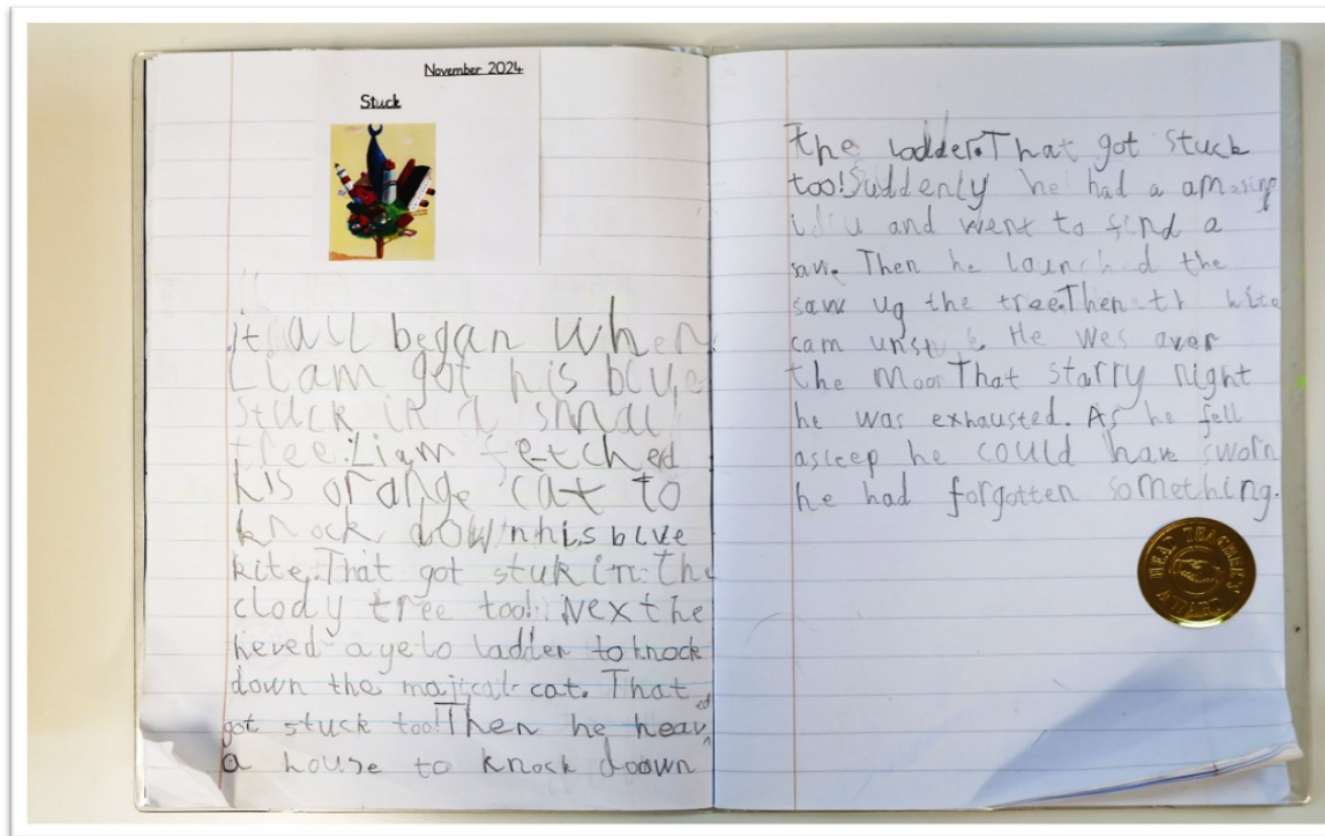 November 2024
Stuck
It all began when
Liam got his blue
stuck in a small
tree. Liam fetched
his orange cat to
knock down his blue
kite. That got stuk in the
clody tree too! Next he
heved a yelo ladder to knock
down the majical cat. That
got stuck too! Then he heaved
a house to knock doown
the ladder. That got stuck
too! Suddenly he had a amasing
idiu and went to find a
saw. Then he launched the
saw ug the tree. Then th kite
cam unstuk. He wes aver
the moon That starry night
he was exhausted. As he fell
asleep he could have sworn
he had forgotten something.
HEAD TEACHER'S
AWARD